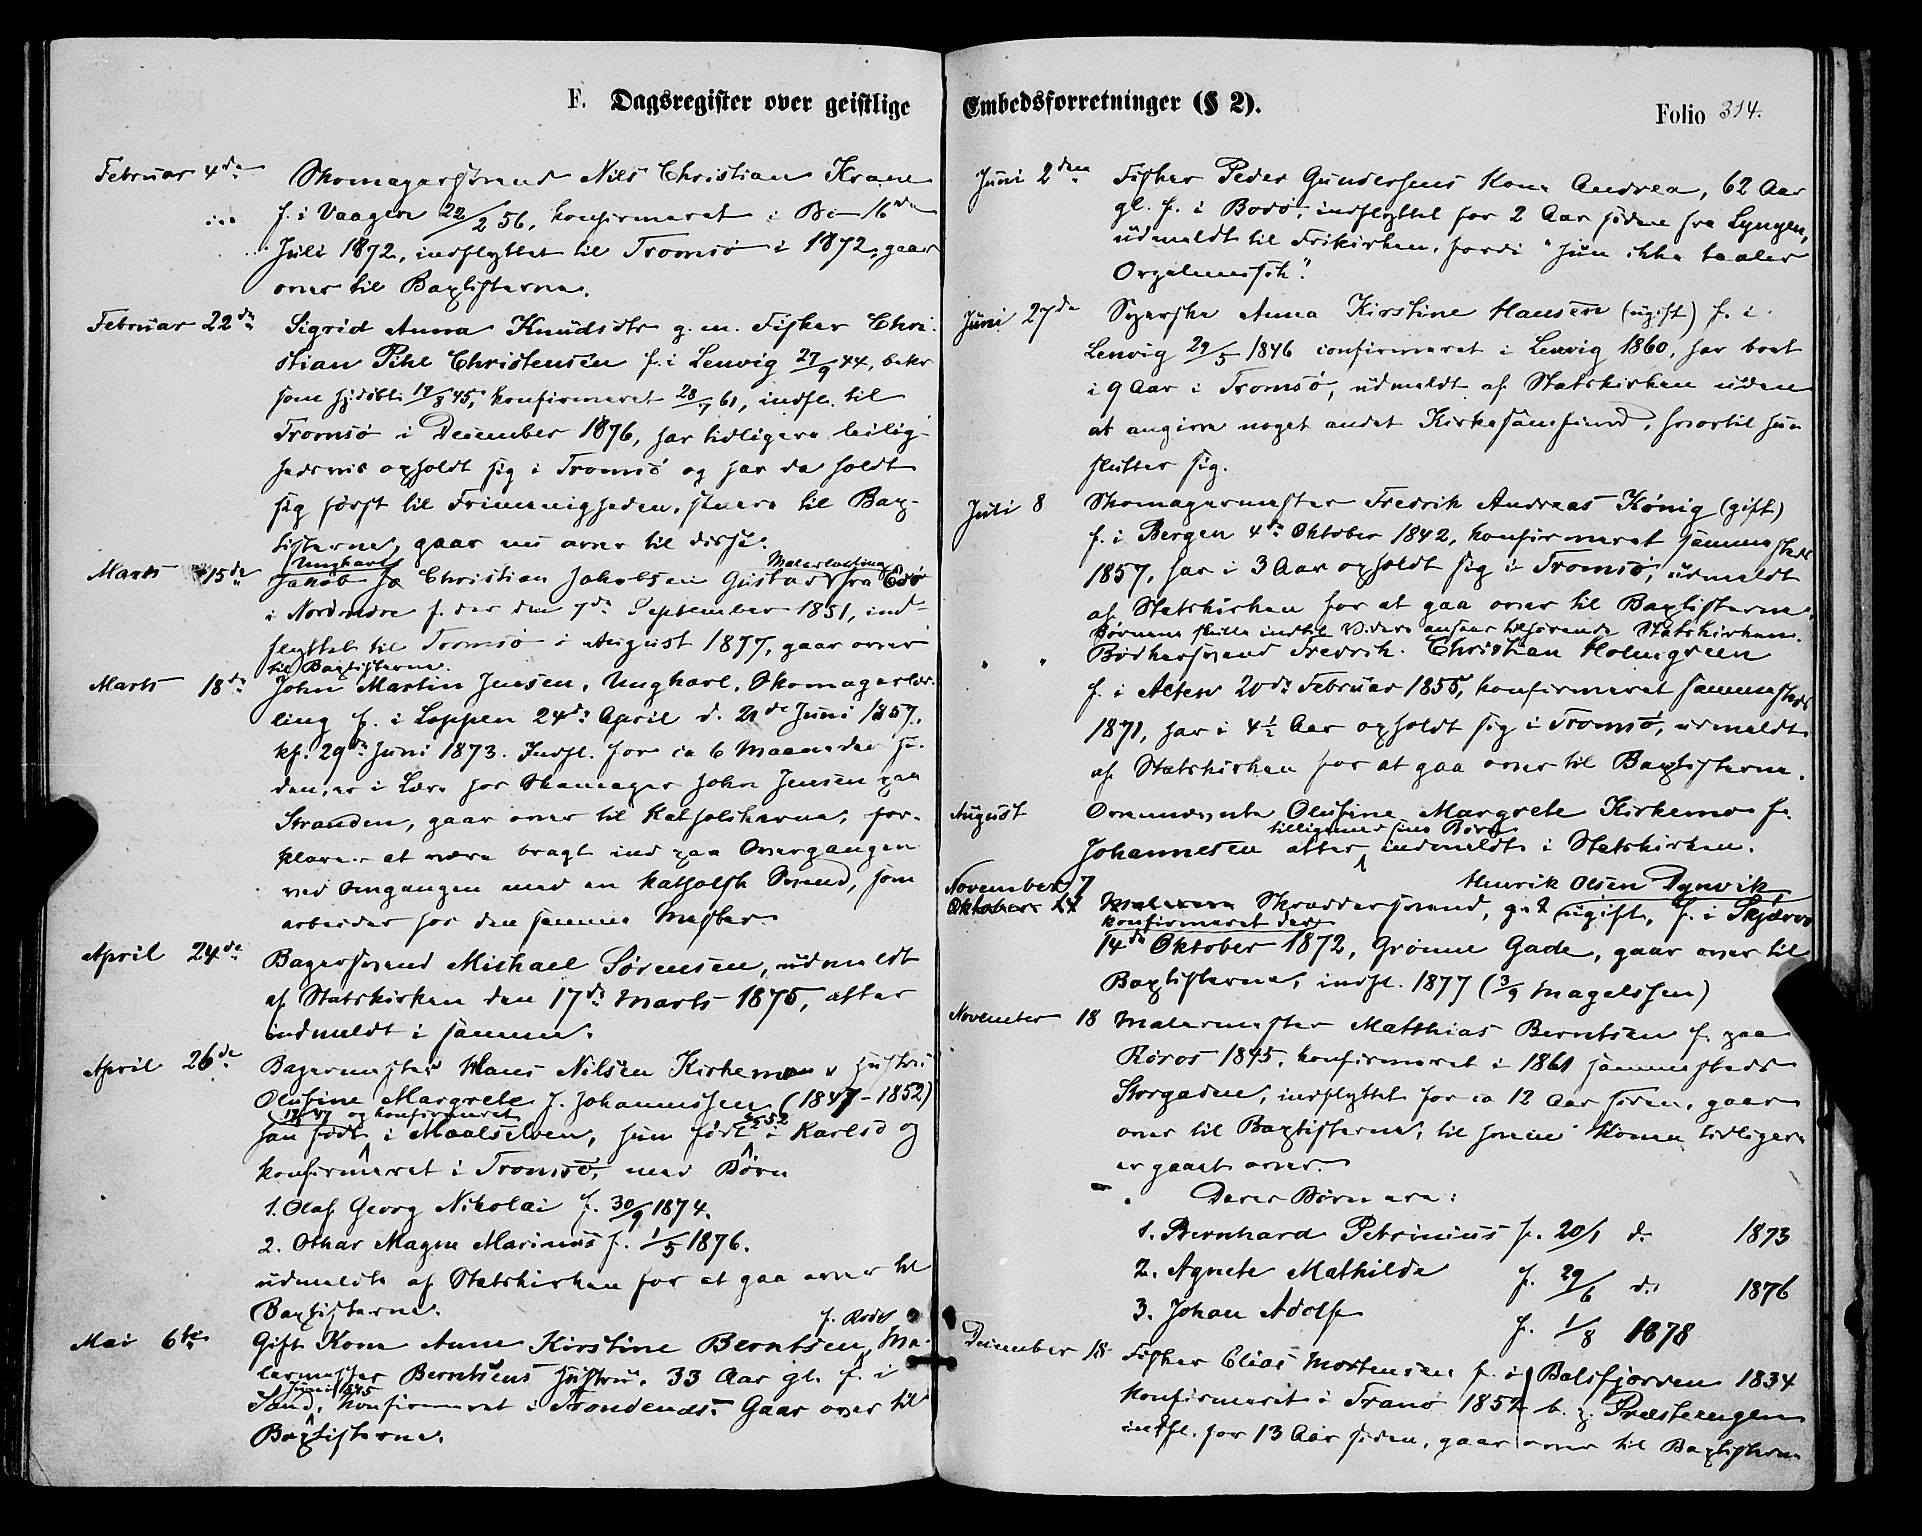 F. Dagsregister over geistlige
Februar 4de Skomagersvend Nils Christian Krane
f. i Vaagen 22/2 56, konfirmeret i Bø 16de
Juli 1872, indflyttet til Tromsø i 1872, gaar
over til Baptisterne.
Februar 22de Sigrid Anna Knudsdtr g. m. Fisker Chri-
stian Pihl Christensen f. i Lenvig 27/9 44,
som hjdøbt 45, konfirmeret 28/7 61, indfl. til
Tromsø i December 1876, har tidligere leilig-
hedsvis opholdt sig i Tromsø og har da holdt
sig først til Frimenigheden, senere til Bap-
tisterne, gaar nu over til disse.
Ungkarl Malerlærling
Marts 15de Jakob Christian Jakobsen Gustad fra Edø
i Nordmøre f. der den 7de September 1851, ind-
flyttet til Tromsø i August 1877, gaar over
til Baptisterne.
Marts 18de John Martin Jensen, Ungkarl, Skomagerlær-
ling f. i Loppen 24de April d. 21de Juni 1857,
kf. 29de Juni 1873. Indfl. for ca 6 Maaneder si-
den, er i Lære hos Skomager John Jensen paa
Stranden, gaar over til Katholikerne, for-
klarer at være bragt ind paa Overgangen
ved Omgangen med en katholsk Svend, som
arbeider hos den samme Mester.
April 24de Bagersvend Michael Sørensen, udmeldt
af Statskirken den 17de Marts 1875, atter
indmeldt i samme.
April 26de Bagermester Hans Nilsen Kirkemo & Hustru
Olufine Margrete f. Johannessen (1847-1852)
47 og konfirmeret 52
han født i Maalselven, hun født i Karlsø og
konfirmeret i Tromsø, med Børn
1. Olaf Georg Nikolai f. 30/9 1874.
2. Othar Magn Marinus f. 1/5 1876.
udmeldte af Statskirken for at gaa over til
Baptisterne.
Mai 6te Gift Kone Anne Kirstine Berntsen, Ma-
lermester Berntsens Hustru, 33 Aar gl. f. i
Juni 1845
Sand, konfirmeret i Trondenæs. Gaar over til
Baptisterne.
Embedsforretninger (§ 2).
Folio 314.
Juni 2den Fisker Peder Gundersens Kone Andrea, 62 Aar
gl. f. i Bodø, indflyttet for 2 Aar siden fra Lyngen,
udmeldt til Frikirken, fordi "hun ikke taaler
Orgelmusik".
Juni 27de Syerske Anna Kirstine Hansen (ugift) f. i
Lenvig 29/5 1846 confirmeret i Lenvig 1860, har boet
i 9 Aar i Tromsø, udmeldt af Statskirken uden
at angive noget andet Kirkesamfund, hvortil hun
slutter sig.
Juli 8 Skomagermester Fredrik Andreas Kønig (gift)
f. i Bergen 4de Oktober 1842, konfirmeret sammesteds
1857, har i 3 Aar opholdt sig i Tromsø, udmeldt
af Statskirken for at gaa over til Baptisterne,
Børnene skulle indtil Videre ansees tilhørende Statskirken.
" " Bødkersvend Fredrik Christian Holmgreen
f. i Alten 20de Februar 1855, konfirmeret sammesteds
1871, har i 4½ Aar opholdt sig i Tromsø, udmeldt
af Statskirken for at gaa over til Baptisterne.
August Ovennævnte Olufine Margrete Kirkemo f.
tilligemed sine Børn
Johannesen atter indmeldt i Statskirken.
November 7 Henrik Olsen Dynvik
Oktober Skræddersvend, ugift, f. i Skjærvø
konfirmeret der
14de Oktober 1872, Grønne Gade, gaar over til
Baptisterne, indfl. 1877 (3/9 Magelssen)
November 18 Malermester Matthias Berntsen f. paa
Røros 1845, konfirmeret i 1861 sammesteds
Storgaden, indflyttet for ca 12 Aar siden, gaar
over til Baptisterne, til hvem Konen tidligere
er gaaet over.
Deres Børn ere:
1. Bernhard Petrinius f. 20/1 d. 1873
2. Agnete Mathilde f. 29/6 d. 1876
3. Johan Adolf f. 1/8 1878
December 18 Fisker Elias Mortensen f. i Balsfjorden 1834
konfirmeret i Tranø 1852 b. p. Præsteengen
indfl. for 13 Aar siden, gaar over til Baptistern